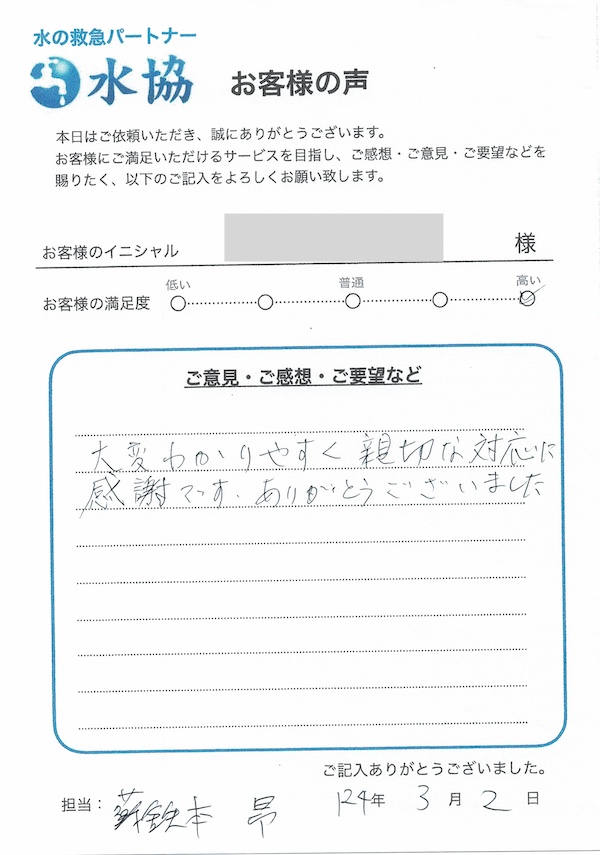 水の救急パートナー
水協 お客様の声
本日はご依頼いただき、誠にありがとうございます。
お客様にご満足いただけるサービスを目指し、ご感想・ご意見・ご要望などを
賜りたく、以下のご記入をよろしくお願い致します。
お客様のイニシャル 様
低い 普通 高い
お客様の満足度
ご意見・ご感想・ご要望など
大変わかりやすく親切な対応に
感謝です。ありがとうございました
ご記入ありがとうございました。
担当: 蘇鉄本 昂 '24年 3月2日